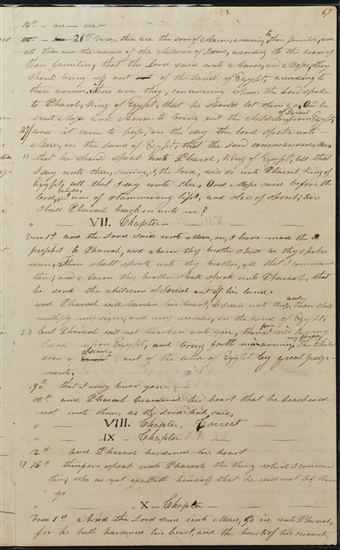 67
14th - are - are
26th Verse, these are the sons of Aaron, according to their families, and
all these are the names of the children of Israel, according to the heads of
their families, that the Lord said unto Aaron, and Moses, they
should bring up out of the land of Egypt according to
their armies, these are they, concerning whom the Lord spake
to Pharaoh, king of Egypt, that he should let them go. And he
sent Moses and Aaron to bring out the children of Israel from Egypt,
27 and it came to pass, on the day the Lord spake unto
Moses, in the land of Egypt, that the Lord commanded Moses
11 that he should speak unto Pharaoh, king of Egypt, all that
I say unto thee, saying, I the Lord, will do unto Pharaoh king of
Egypt, all that I say unto thee. And Moses said before the
Lord, I am of stammering lips, and slow of speech; how
shall Pharaoh hearken unto me?
" VII. Chapter
Verse 1st and the Lord said unto Moses, see, I have made thee a
prophet to Pharaoh, and Aaron thy brother shall be thy spokes-
man, Thou shalt speak unto thy brother, all that I command
thee; and Aaron thy brother shall speak unto Pharaoh, that
he send the children of Israel out of his land;
and Pharaoh will harden his heart, as I said unto thee; and Thou shalt
multiply my signs, and my wonders, in the land of Egypt,
23 but Pharaoh will not hearken unto you, therefore I will lay my
hand upon Egypt, and bring forth mine armies, my people, the chil-
dren of Israel, out of the land of Egypt by great judge-
ments;
9th that I may know you
10th and Pharaoh hardened his heart that he hearkened
not unto them, as the Lord had said,
" VIII. Chapter, Correct
" IX Chapter
12th and Pharaoh hardened his heart
17 16th therefore speak unto Pharaoh the thing which I command
thee, who as yet exalteth himself that he will not let them
go
" X Chapter
Verse 1st And the Lord said unto Moses, Go in unto Pharaoh,
for he hath hardened his heart, and the hearts of his servants,